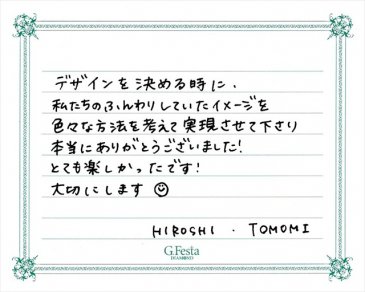 デザインを決める時に、
私たちのふんわりしていたイメージを
色々な方法を考えて実現させて下さり
本当にありがとうございました!
とても楽しかったです!
大切にします ☺
HIROSHI . TOMOMI
G.Festa
DIAMOND